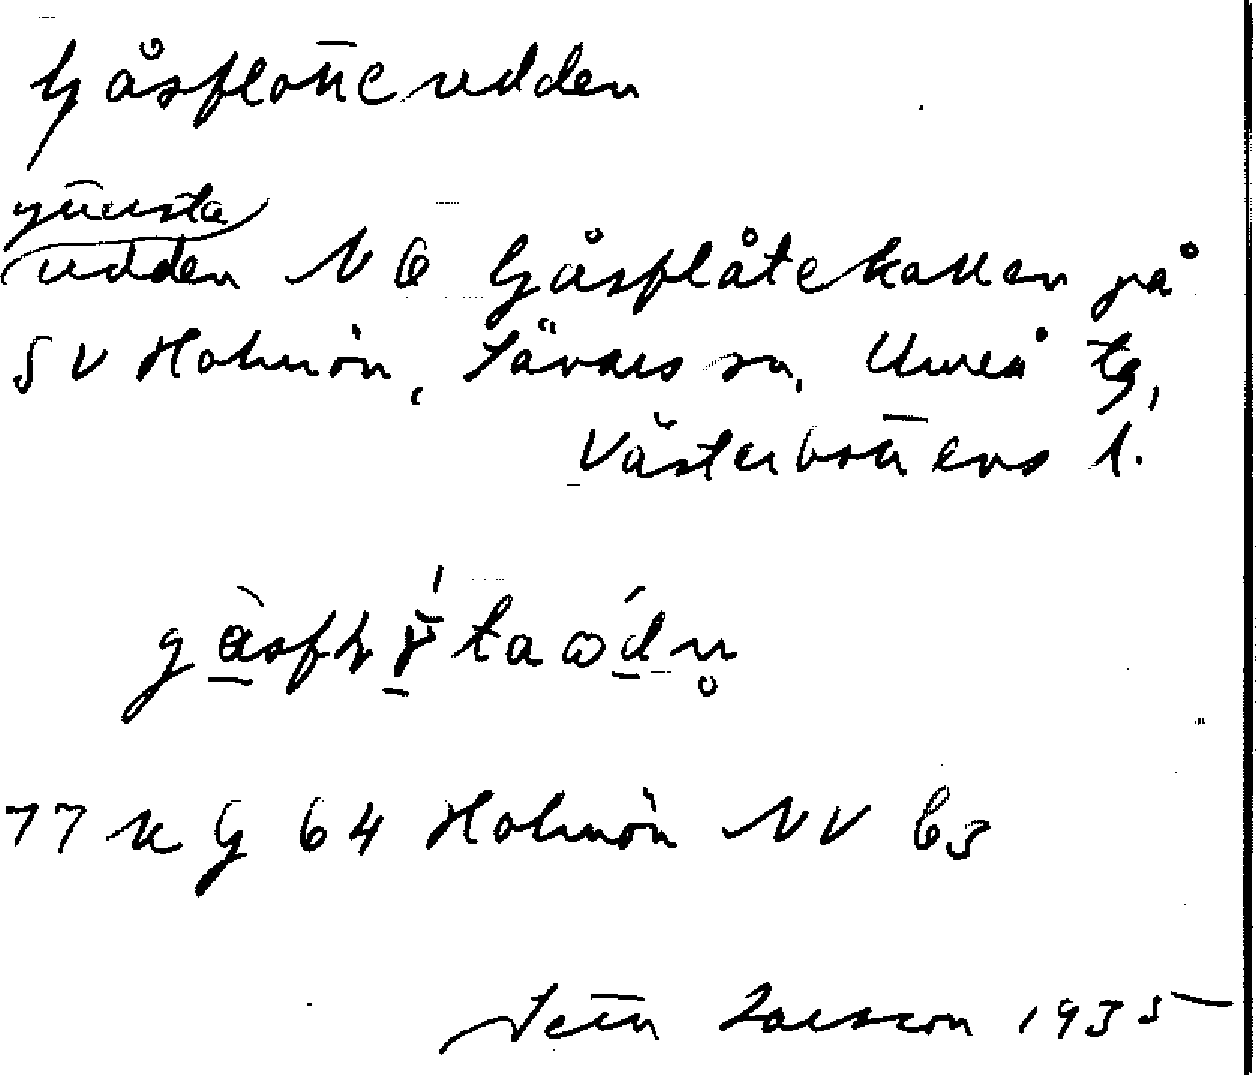 Gåsflotteudden
yttersta
udden NO Gåsflåtekallen på
SV Holmön, Sävars sn, Umeå tg,
Västerbottens l.
77 KG 64 Holmön NV b5
Larsson 1935